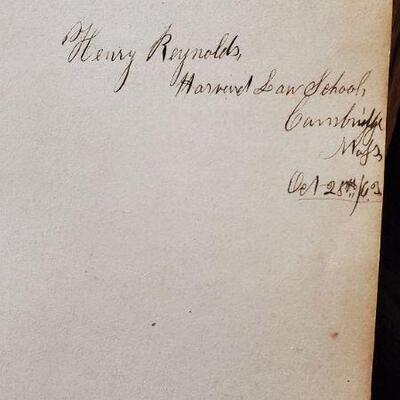 Henry Reynolds,
Harvard Law School,
Cambridge
Mass
Oct 28th/63